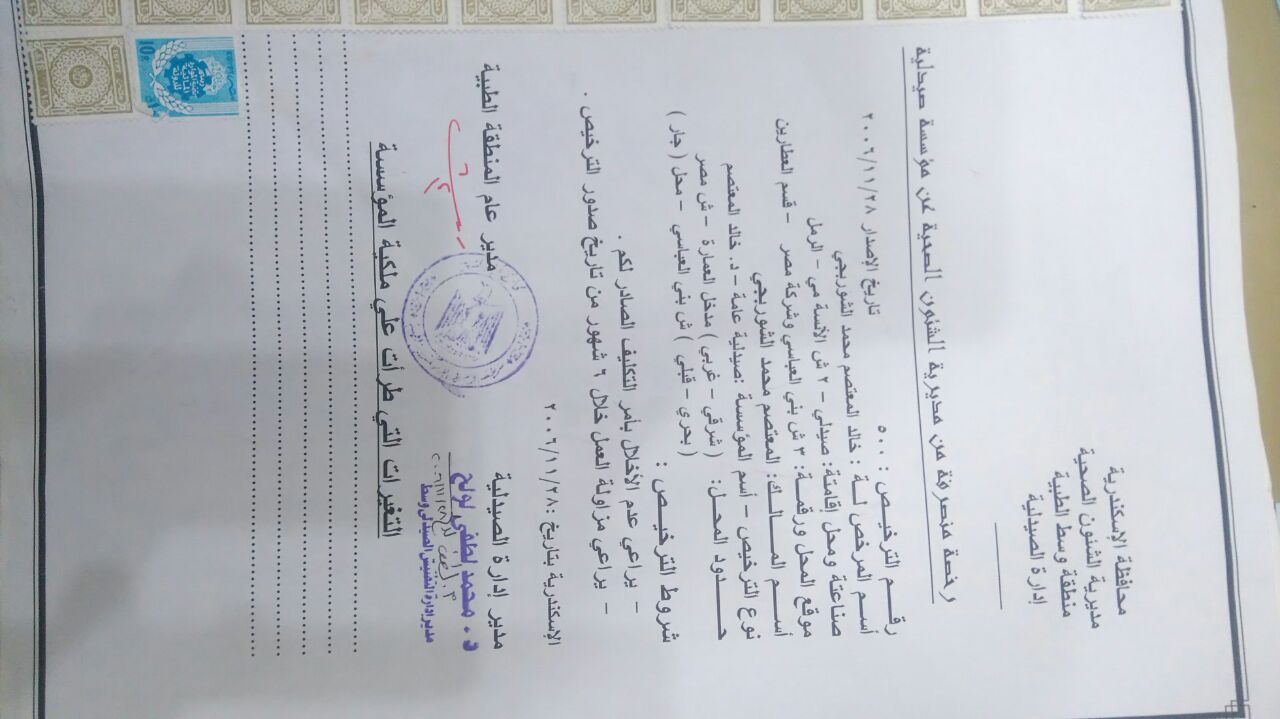 محافظة الإسكندرية
مديرية الشئون الصحية
منطقة وسط الطبية
إدارة الصيدلية
رخصة منصرفة من مديرية الشئون الصحية عن مؤسسة صيدلية
رقـم الترخيص : ٥٠٠ تاريخ الإصدار ٢٠٠٦/١١/٢٨
أسـم المرخص لـة : خالد المعتصم محمد الشوربجي
صناعتة ومحل إقامتة: صيدلي - ٢ ش الأنسة مي - الرمل
موقع المحل ورقمـة: ٣ ش بني العباسي وشركة مصر - قسم العطارين
أسـم المـــالـك: المعتصم محمد الشوربجي
نوع الترخيص - أسم المؤسسة :صيدلية عامة - د. خالد المعتصم
حــــدود المحـل: ( شرقي - غربي ) مدخل العمارة - ش مصر
( بحري - قبلي ) ش بني العباسي - محل ( جار )
شروط الترخيـص :
- يراعي عدم الأخلال بأمر التكليف الصادر لكم .
- يراعي مزاولة العمل خلال ٦ شهور من تاريخ صدور الترخيص .
الإسكندرية بتاريخ :٢٠٠٦/١١/٢٨
مدير إدارة الصيدلية مدير عام المنطقة الطبية
د. محمد لطفي لولح
٢٠٠٦/١١/٢٨
مدير إدارة التفتيش الصيدلي وسط
التغيرات التي طرأت علي ملكية المؤسسة